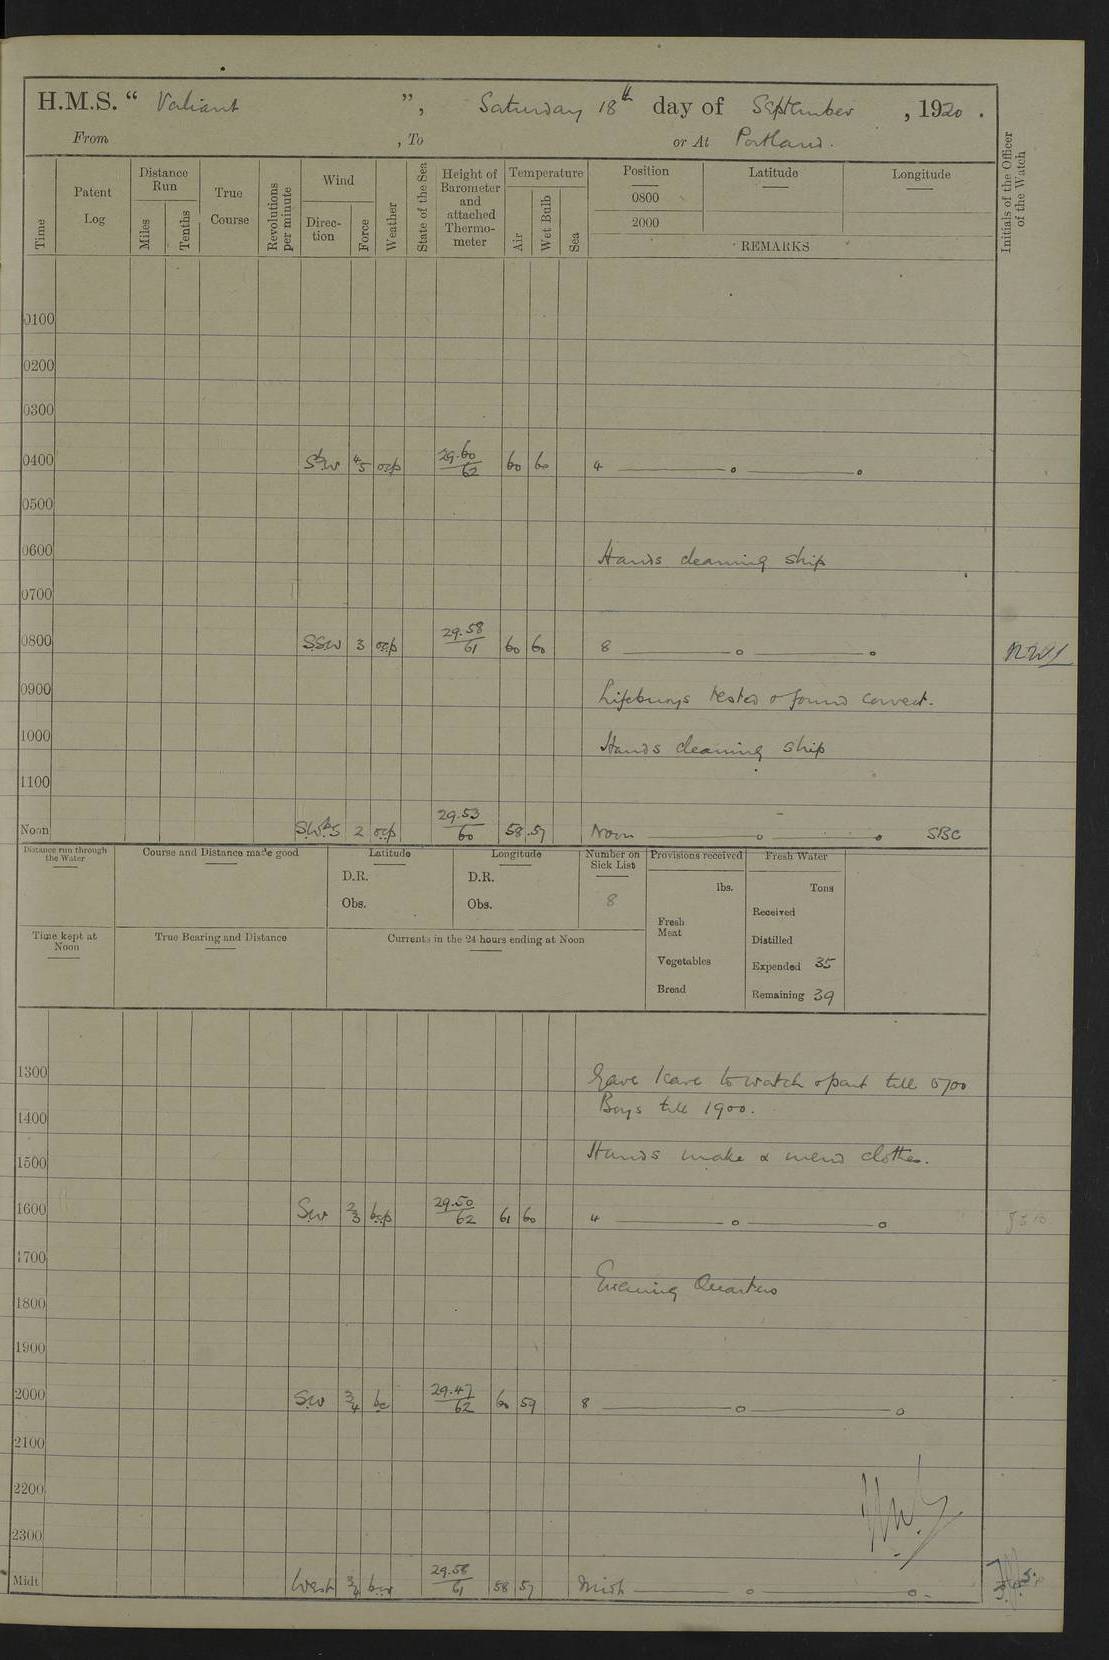 H.M.S. “ Valiant ”, Saturday 18th day of September , 1920 .
From , To or At Portland.
Time
Patent Log
Distance Run
Miles
Tenths
True Course
Revolutions per minute
Wind
Direction
Force
Weather
State of the Sea
Height of Barometer and attached Thermometer
Temperature
Air
Wet Bulb
Sea
Position
0800
2000
Latitude
Longitude
REMARKS
Initials of the Officer of the Watch
0100
0200
0300
0400 SbW 4/5 ocp 29.60/62 60 60 4
0500
0600 Hands cleaning ship
0700
0800 SSW 3 ocp 29.58/61 60 60 8
0900 Lifebuoys tested & found correct.
1000 Hands cleaning ship
1100
Noon SWbS 2 ocp 29.53/60 58 57 Noon SBC
Distance run through the Water
Course and Distance made good
Latitude
D.R.
Obs.
Longitude
D.R.
Obs.
Number on Sick List
8
Provisions received
lbs.
Fresh Meat
Vegetables
Bread
Fresh Water
Tons
Received
Distilled
Expended 35
Remaining 39
Time kept at Noon
True Bearing and Distance
Currents in the 24 hours ending at Noon
1300 Gave leave to watch & part till 0700
Boys till 1900.
1400
1500 Hands make & mend clothes.
1600 SW 2/3 bcp 29.50/62 61 60 4
1700
Evening Quarters
1800
1900
2000 SW 3/4 bc 29.47/62 60 59 8
2100
2200
2300
Midt West 3/4 29.58/61 58 57 Midt